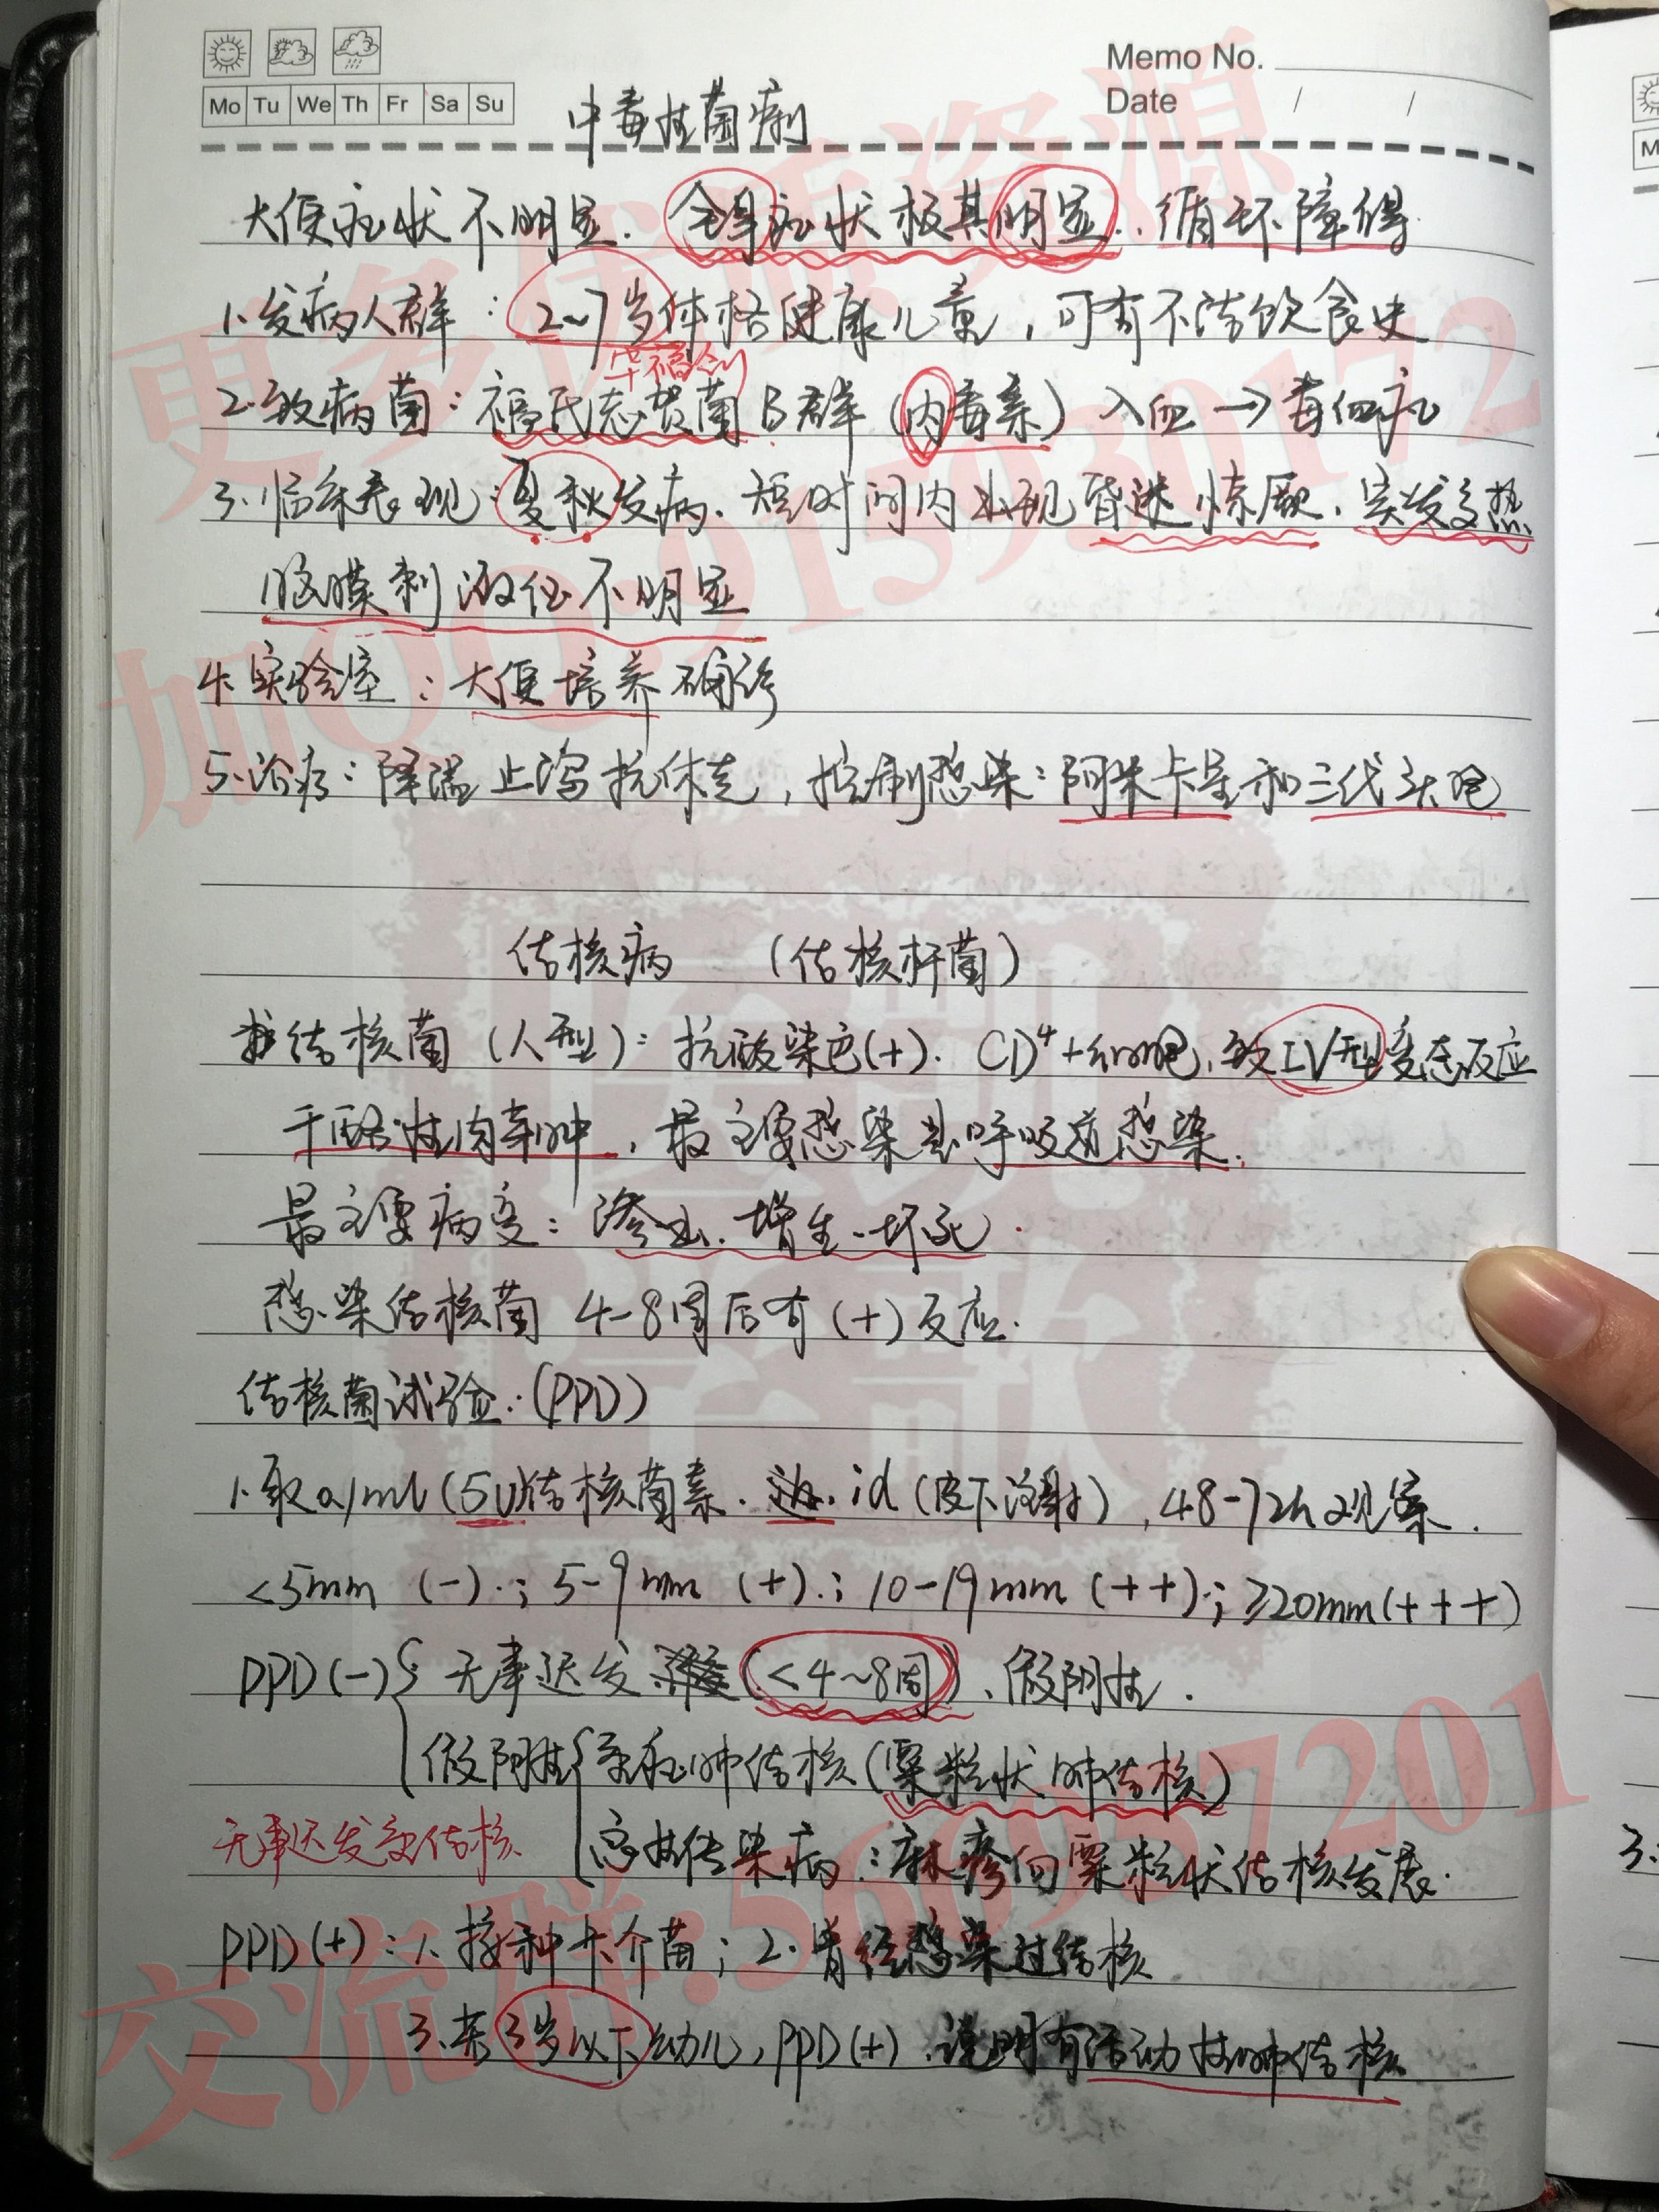 Memo No.
Mo Tu We Th Fr Sa Su
Date / /
中毒性菌痢
大便症状不明显. 全身症状极其明显. 循环障碍.
1.发病人群：2~7岁体格健康儿童，可有不洁饮食史
2.致病菌：福氏志贺菌B群（内毒素）入血→毒血症
3.临床表现：夏秋发病. 短时间内出现昏迷惊厥. 突发高热
脑膜刺激征不明显
4.实验室：大便培养确诊
5.治疗：降温止泻抗休克，控制感染：阿米卡星和三代头孢
结核病 （结核杆菌）
结核菌（人型）：抗酸染色(+). CD4+细胞, 致IV型变态反应
干酪性肉芽肿，最主要感染为呼吸道感染.
最主要病变：渗出. 增生. 坏死.
感染结核菌 4-8周后有(+)反应.
结核菌试验.(PPD)
1.取0.1ml(5U)结核菌素. id(皮下注射), 48-72h观察.
<5mm (-).; 5-9mm (+).; 10-19mm (++); ≥20mm(+++)
PPD(-) 无事迟发 (<4~8周). 假阴性.
假阴性 重症肺结核(粟粒状肺结核)
无事迟发变结核
急性传染病：麻疹向粟粒状结核发展.
PPD(+)：1.接种卡介苗；2.曾经感染过结核
3.若3岁以下幼儿, PPD(+). 说明有活动性肺结核
更多优质资源
加QQ:915930172
交流群:560937201